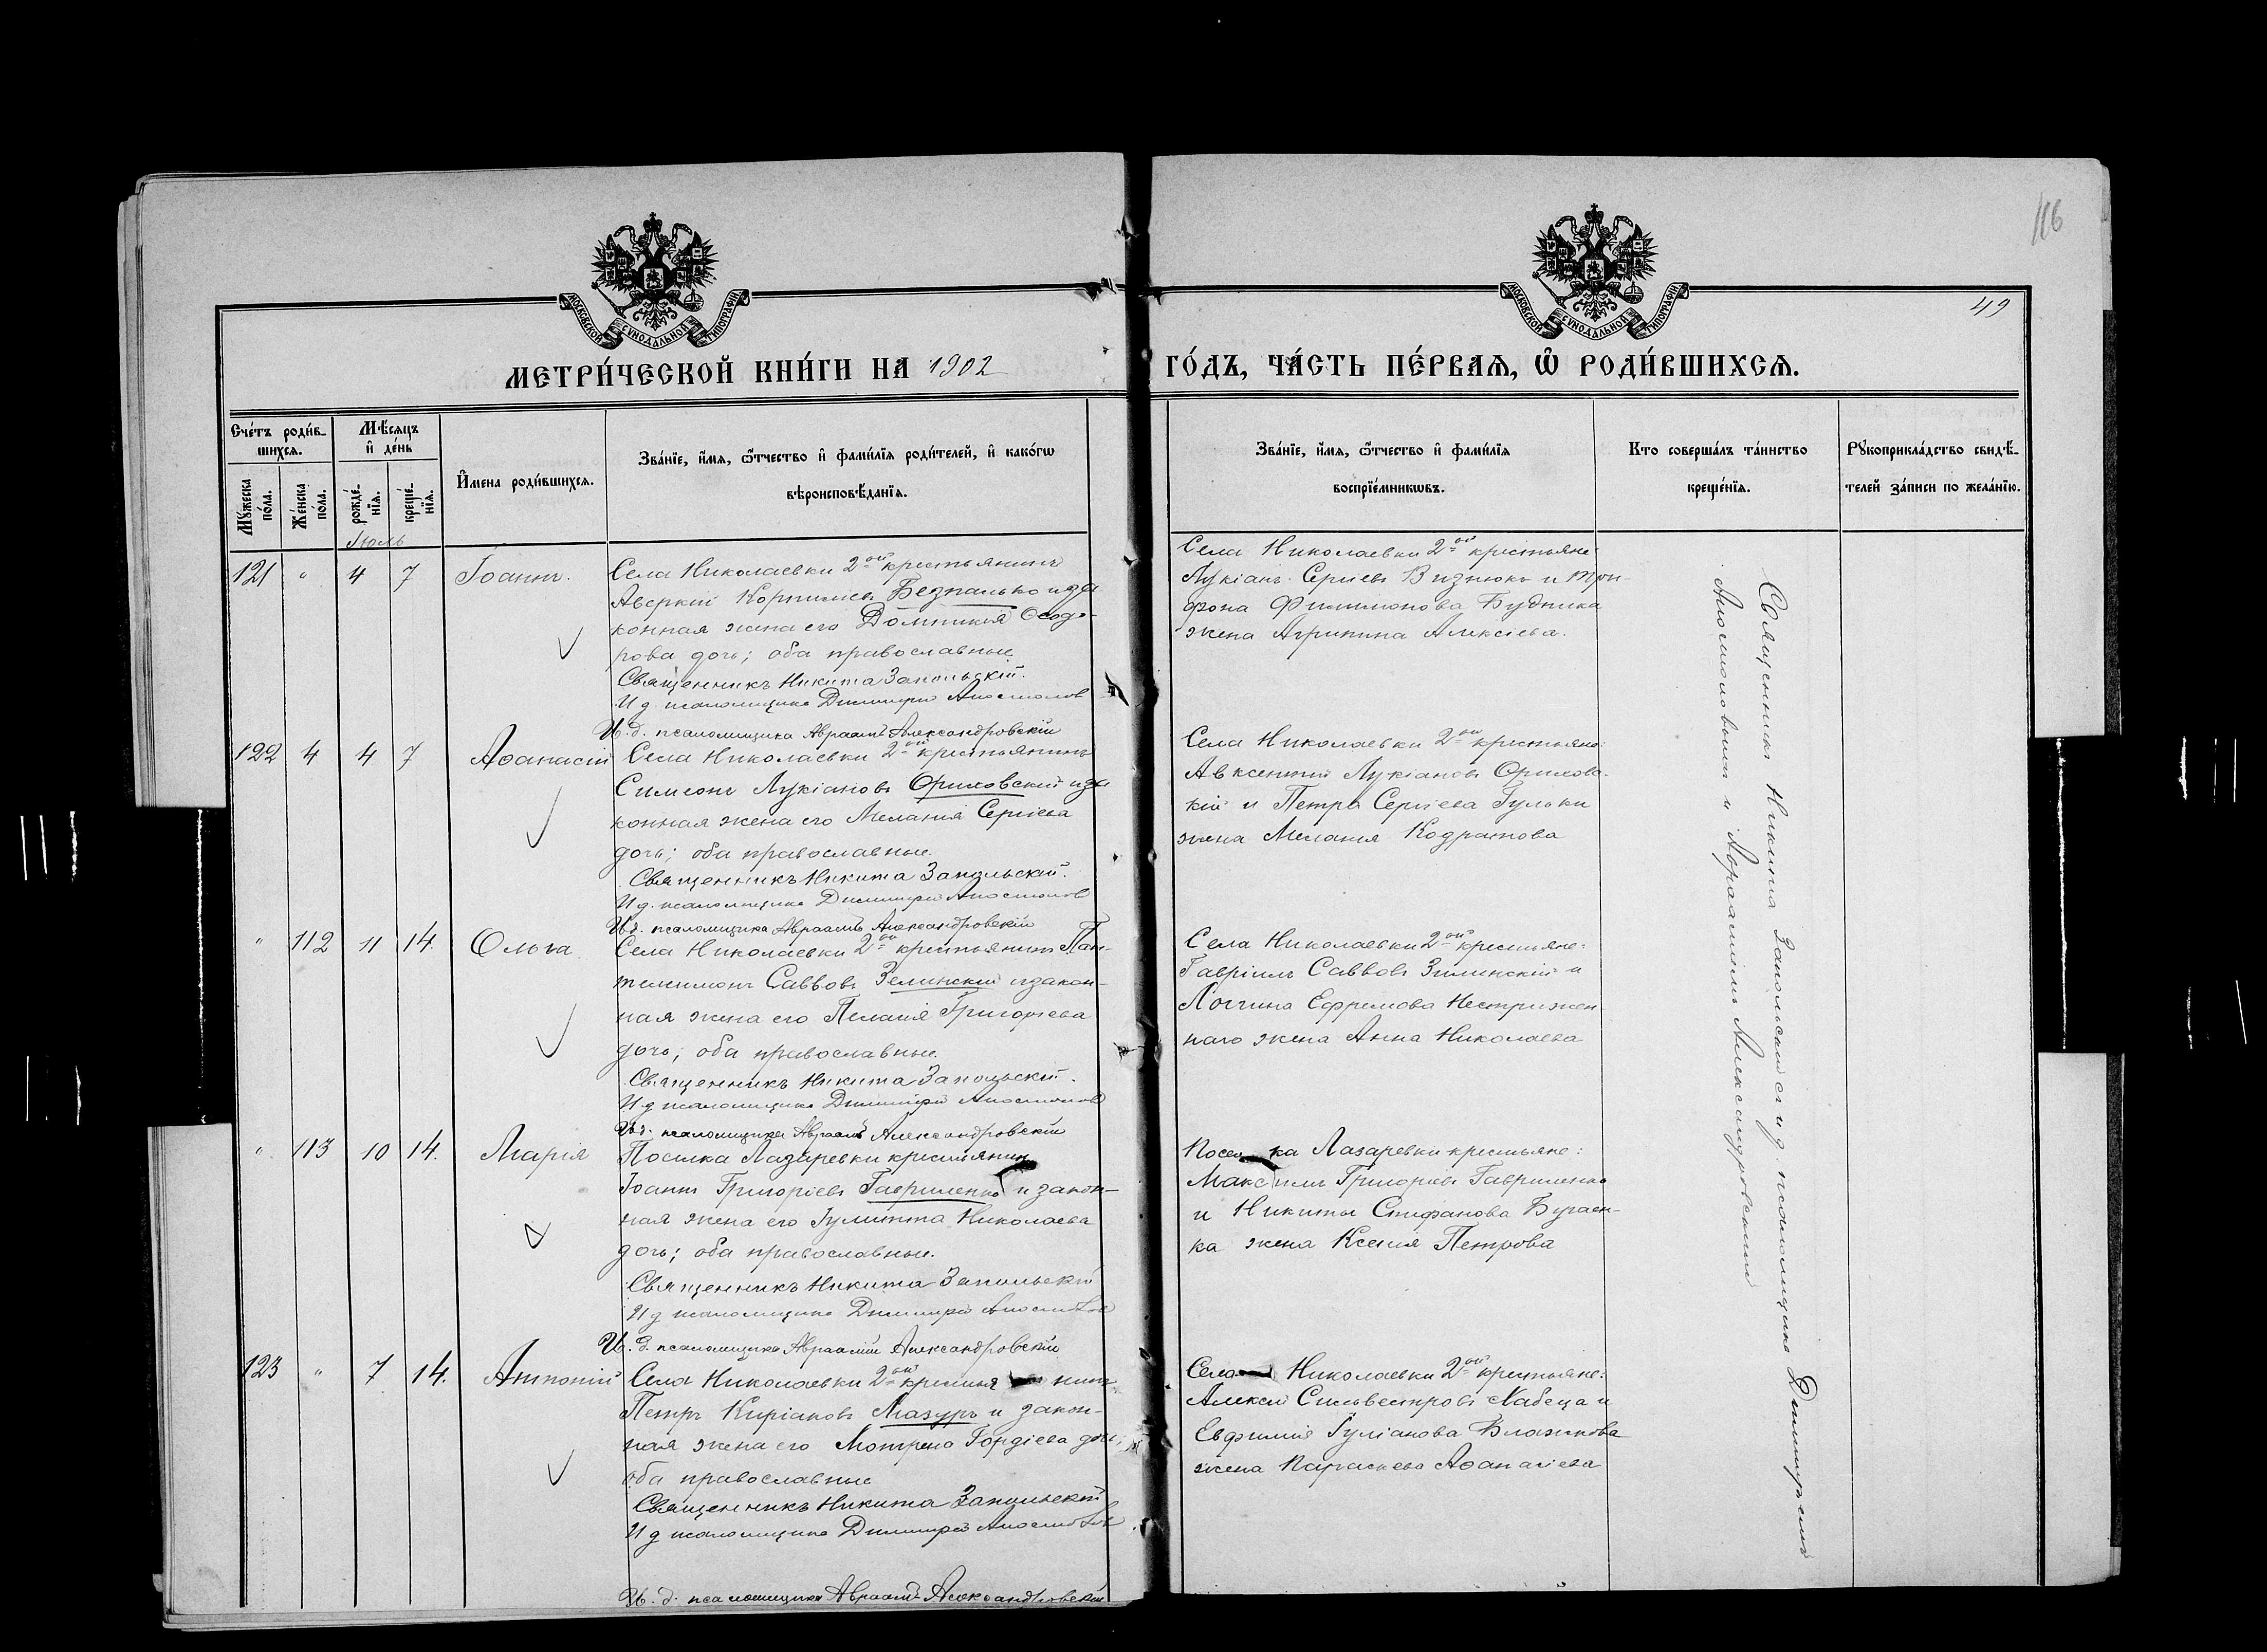 116
49
МОСКОВСКОЙ СУНОДАЛЬНОЙ ТИПОГРАФІИ
МОСКОВСКОЙ СУНОДАЛЬНОЙ ТИПОГРАФІИ
МЕТРИ́ЧЕСКОЙ КНИ́ГИ НА 1902 ГО́ДЪ, ЧА́СТЬ ПЕ́РВАѦ, Ѡ҆ РОДИ́ВШИХСѦ.
Сче́тъ роди́в-
шихсѧ.
Мѣ́сѧцъ
и҆ де́нь
И҆мена роди́вшихсѧ.
Зва́нїе, и҆́мѧ, ѻ҆́тчество и҆ фами́лїѧ роди́телей, и҆ како́гѡ
вѣроисповѣ́данїѧ.
Зва́нїе, и҆́мѧ, ѻ҆́тчество и҆ фами́лїѧ
воспрїе́мникѡвъ.
Кто соверша́лъ та́инство
креще́нїѧ.
Рꙋкоприкла́дство свидѣ́-
телей за́писи по жела́нїю.
Мꙋ́жеска по́ла.
Же́нска по́ла.
рожде́-нїѧ.
креще́-нїѧ.
Іюль
121 " 4 7 Іоаннъ.
Села Николаевки 2ой крестьянинъ
Аверкій Корнилiевъ Безпалько и за
конная жена его Домникія Ѳеодо-
рова дочь; оба православные
Священникъ Никита Запольскій.
И д. псаломщика Димитрій Апостолов
И. д. псаломщика Авраамій Александровскій
Села Николаевки 2ой крестьяне:
Лукіанъ Сергіевъ Визнюкъ и Три-
фона Филимонова Будника
жена Агрипина Алексіева.
122 4 4 7 Аѳанасій
Села Николаевки 2ой крестьянинъ
Симеонъ Лукіановъ Ориловскій и за
конная жена его Меланія Сергіева
дочь; оба православные.
Священникъ Никита Запольскій.
И д. псаломщика Димитрій Апостолов
И. д. псаломщика Авраамій Александровскій
Села Николаевки 2ой крестьяне:
Авксентий Лукіановъ Орилов-
кій и Петра Сергіева Гульки
жена Меланія Кодратова
" 112 11 14. Ольга
Села Николаевки 2ой крестьянинъ Пан-
телимонъ Саввовъ Зелинскій и закон-
ная жена его Пелагія Григоріева
дочь; оба православные.
Священникъ Никита Запольскій.
И д псаломщика Димитрій Апостолов
И. д. псаломщика Авраамій Александровскій
Села Николаевки 2ой крестьяне:
Гавріилъ Саввовъ Зилинскій и
Логгина Ефремова Нестрижен
наго жена Анна Николаева
" 113 10 14. Марія
Поселка Лазаревки крестьянин
Іоаннъ Григоріевъ Гавриленко и закон-
ная жена его Іулитта Николаева
дочь; оба православные.
Священникъ Никита Запольскій
И д псаломщика Димитрій Апостолов
И. д. псаломщика Авраамій Александровскій
Поселка Лазаревки крестьяне:
Максимъ Григоріевъ Гавриленко
и Никиты Стефанова Бугаен-
ка жена Ксенія Петрова
123 " 7 14. Антоній
Села Николаевки 2ой крестьянинъ
Петръ Киріаковъ Мазуръ и закон-
ная жена его Мотрона Гордіева дочь;
оба православные
Священникъ Никита Запольскій
И д псаломщика Димитрій Апостолов
И. д. псаломщика Авраамій Александровскій
Села Николаевки 2ой крестьяне:
Алексій Сильвестровъ Хабеца и
Евфимія Іуліанова Блажкова
жена Параскева Аѳанасіева
Священникъ Никита Запольскій съ и д. псаломщика Димитріемъ
Апостоловымъ и Авраамiемъ Александровскимъ